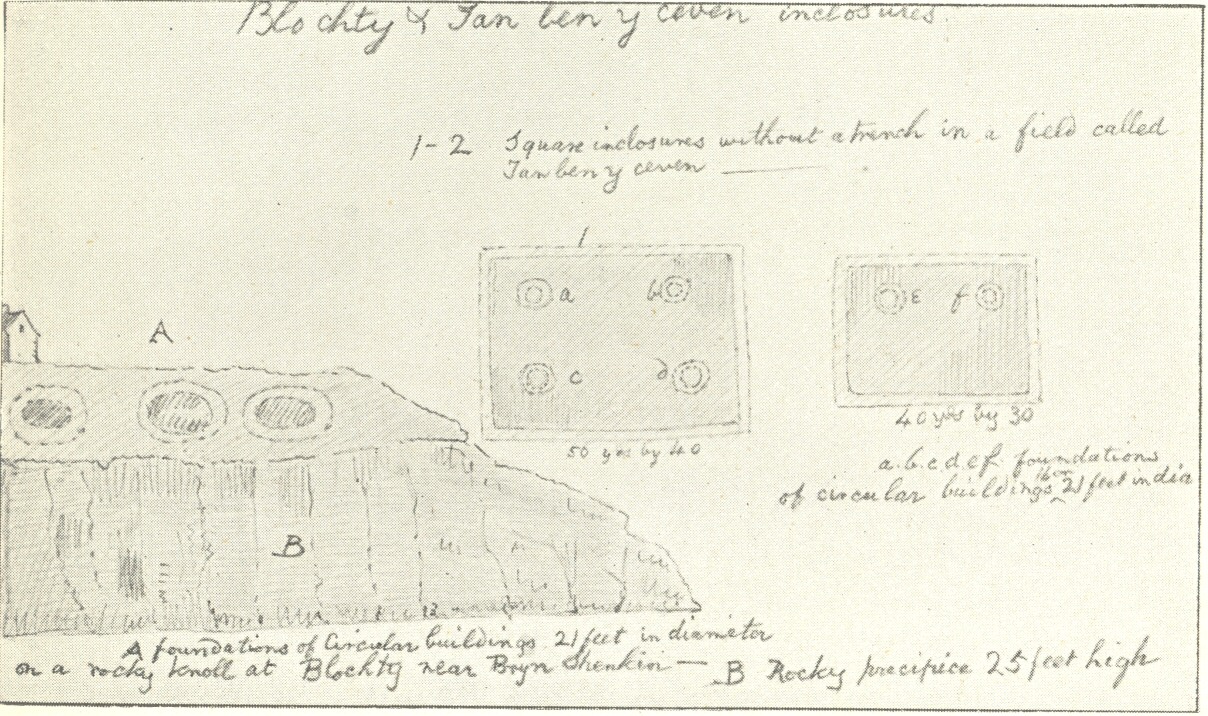 Blochty & Tan ben y ceven inclosures
1-2 Square inclosures without a trench in a field called
Tan ben y ceven
1
a b
c d
50 yds by 40
e f
40 yds by 30
a.b.c.d.e.f. foundations
of circular buildings 21 feet in dia
A
B
A foundations of Circular buildings 21 feet in diameter
on a rocky knoll at Blochty near Bryn Shenkin — B Rocky precipice 25 feet high